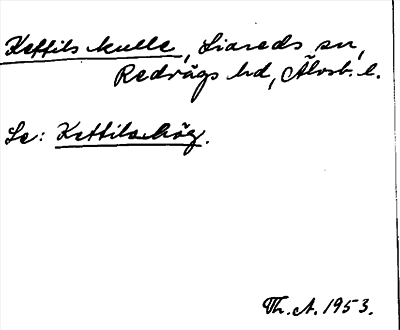 Kettils kulle, Liareds sn,
Redvägs hd, Älvsb. l.
Se: Kettils hög.
Th. A. 1953.